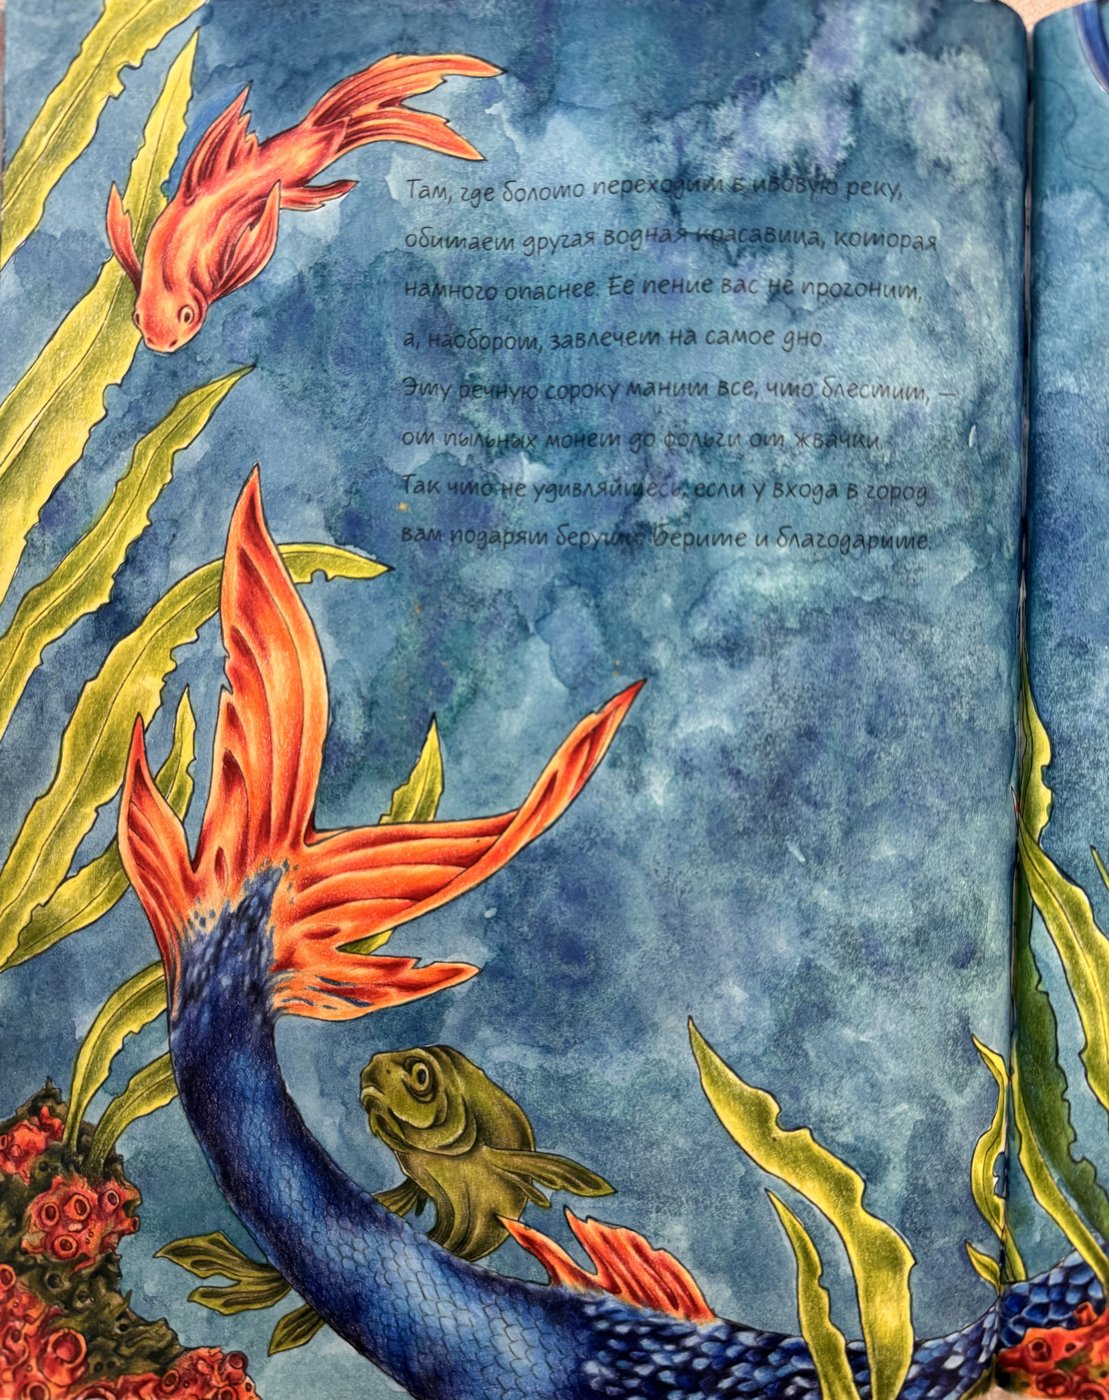 Там, где болото переходит в ивовую реку,
обитает другая водная красавица, которая
намного опаснее. Ее пение вас не прогонит,
а, наоборот, завлечет на самое дно.
Эту речную сороку манит все, что блестит, —
от пыльных монет до фольги от жвачки.
Так что не удивляйтесь, если у входа в город
вам подарят беруши. Берите и благодарите.